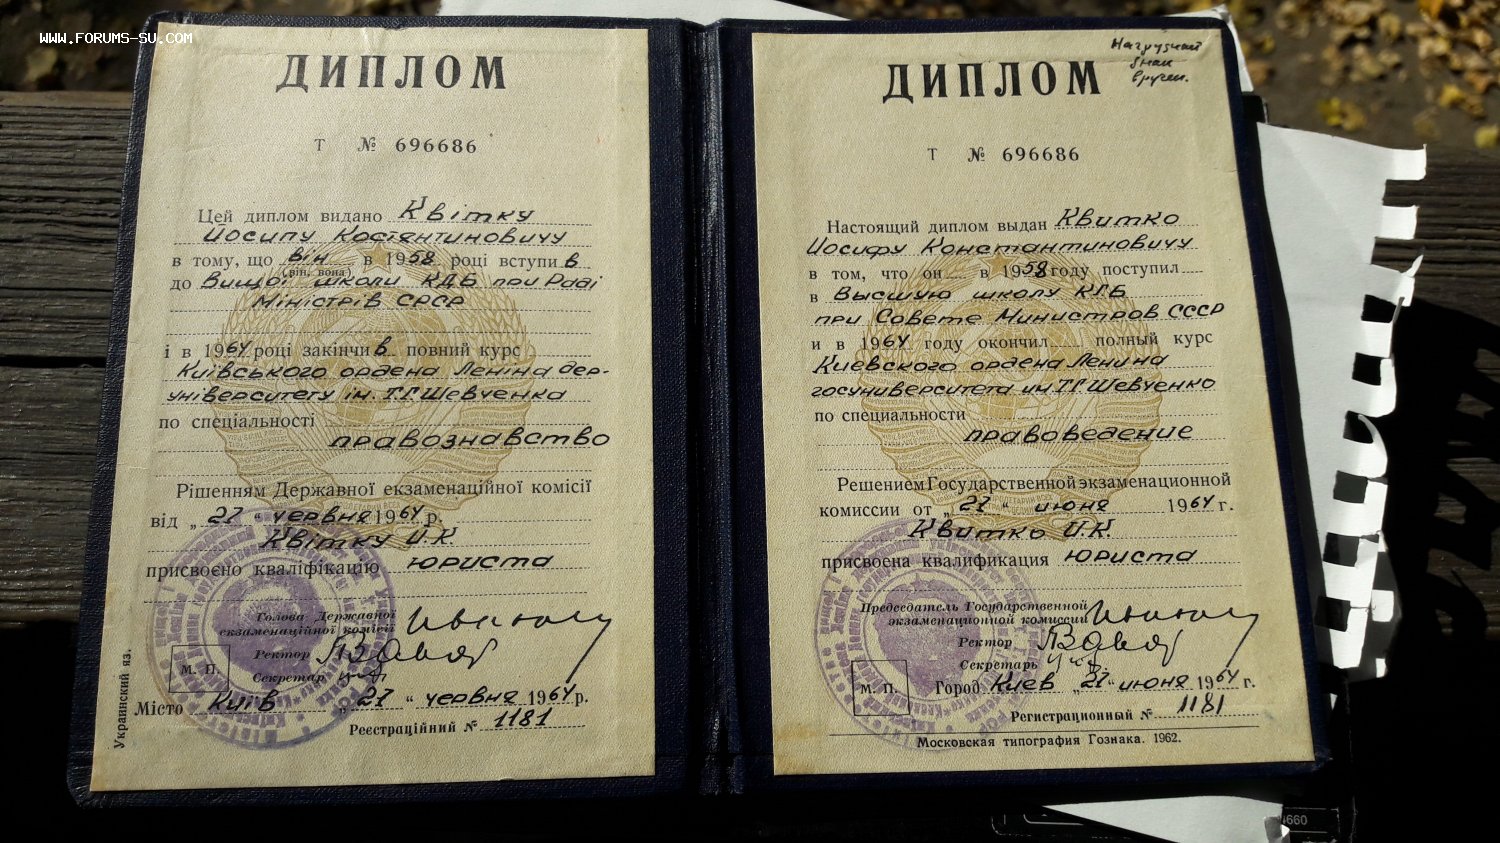 WWW.FORUMS-SU.COM
ДИПЛОМ
Т № 696686
Цей диплом видано Квітку
Йосипу Костянтиновичу
в тому, що він в 1958 році вступив
(він, вона)
до Вищої школи КДБ при Раді
Міністрів СРСР
і в 1964 році закінчив повний курс
Київського ордена Леніна дер-
університету ім. Т.Г. Шевченка
по спеціальності
правознавство
Рішенням Державної екзаменаційної комісії
від „27“ червня 1964 р.
Квітку Й.К.
присвоєно кваліфікацію юриста
Голова Державної
екзаменаційної комісії
Ректор
Секретар
М. П.
Місто Київ „27“ червня 1964 р.
Реєстраційний № 1181
Украинский яз.
Нагрудный
знак
вручен.
ДИПЛОМ
Т № 696686
Настоящий диплом выдан Квитко
Иосифу Константиновичу
в том, что он в 1958 году поступил
в Высшую школу КГБ
при Совете Министров СССР
и в 1964 году окончил полный курс
Киевского ордена Ленина
госуниверситета им. Т.Г. Шевченко
по специальности
правоведение
Решением Государственной экзаменационной
комиссии от „27“ июня 1964 г.
Квитко И.К.
присвоена квалификация юриста
Председатель Государственной
экзаменационной комиссии
Ректор
Секретарь
М. П.
Город Киев „27“ июня 1964 г.
Регистрационный № 1181
Московская типография Гознака. 1962.
4660